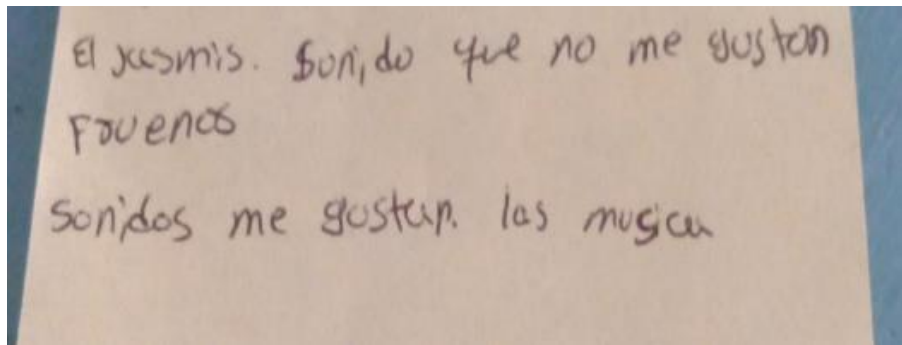 El jasmis. Sonido que no me gustan
Fouenos
Sonidos me gustan. las musica